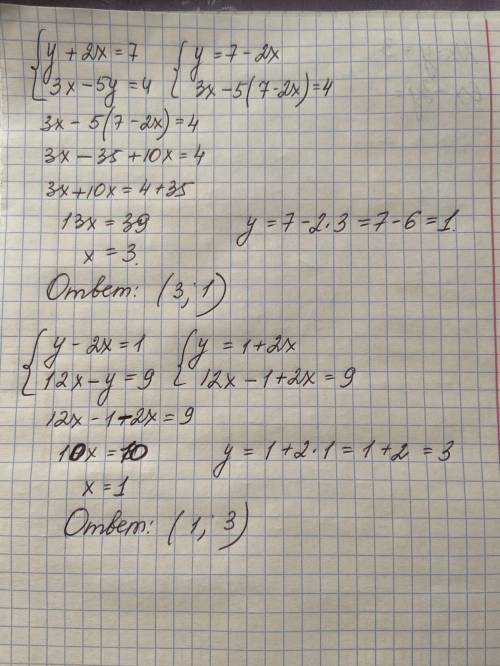 {y + 2x = 7 {y = 7 - 2x
{3x - 5y = 4 {3x - 5(7 - 2x) = 4
3x - 5(7 - 2x) = 4
3x - 35 + 10x = 4
3x + 10x = 4 + 35
13x = 39 y = 7 - 2·3 = 7 - 6 = 1.
x = 3.
Ответ: (3; 1)
{y - 2x = 1 {y = 1 + 2x
{12x - y = 9 {12x - 1 + 2x = 9
12x - 1 - 2x = 9
10x = 10 y = 1 + 2·1 = 1 + 2 = 3
x = 1
Ответ: (1; 3)